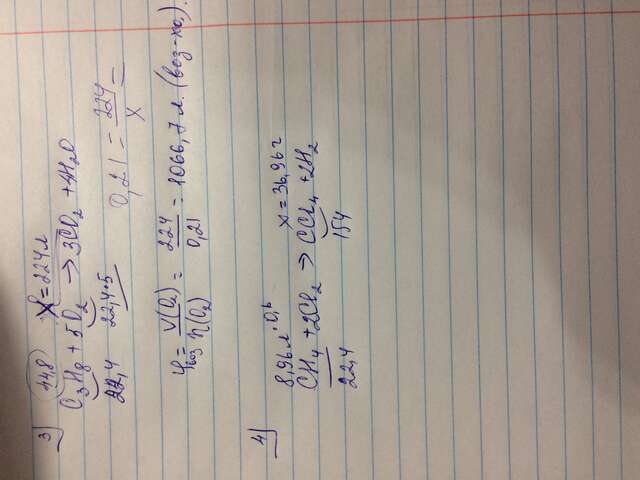 3) 44,8 x = 224 л
C₃H₈ + 5O₂ → 3CO₂ + 4H₂O
22,4 22,4·5
0,21 = 224/x =
φвоз = V(O₂)/η(O₂) = 224/0,21 = 1066,7 л. (воз-ха).
4)
8,96 л · 0,6 x = 36,96 г
CH₄ + 2Cl₂ → CCl₄ + 2H₂
22,4 154